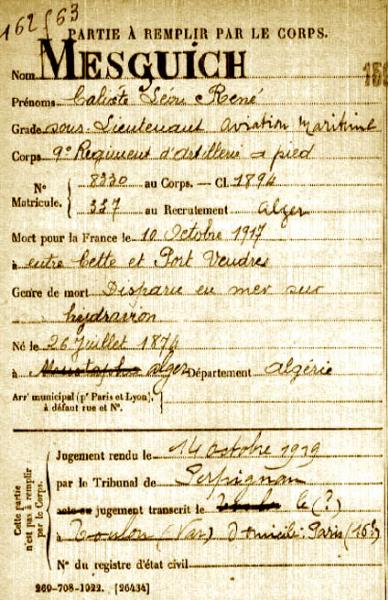 162563
PARTIE À REMPLIR PAR LE CORPS.
Nom MESGUICH
Prénoms Calixte Léon René
Grade sous-Lieutenant Aviation Maritime
Corps 9e Régiment d'Artillerie a pied
N° Matricule. { 8330 au Corps. — Cl. 1894
337 au Recrutement Alger
Mort pour la France le 10 Octobre 1917
à entre Cette et Port Vendres
Genre de mort Disparu en mer sur
hydravion
Né le 26 Juillet 1874
à Mustapha alger Département Algérie
Arrt municipal (pr Paris et Lyon),
à défaut rue et N°.
Cette partie n'est pas à remplir par le Corps.
Jugement rendu le 14 octobre 1919
par le Tribunal de Perpignan
jugement transcrit le (?)
à Toulon (Var) Domicile: Paris (16e)
N° du registre d'état civil
269-708-1922. [26434]